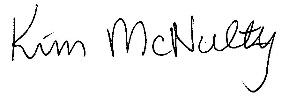 Kim McNulty